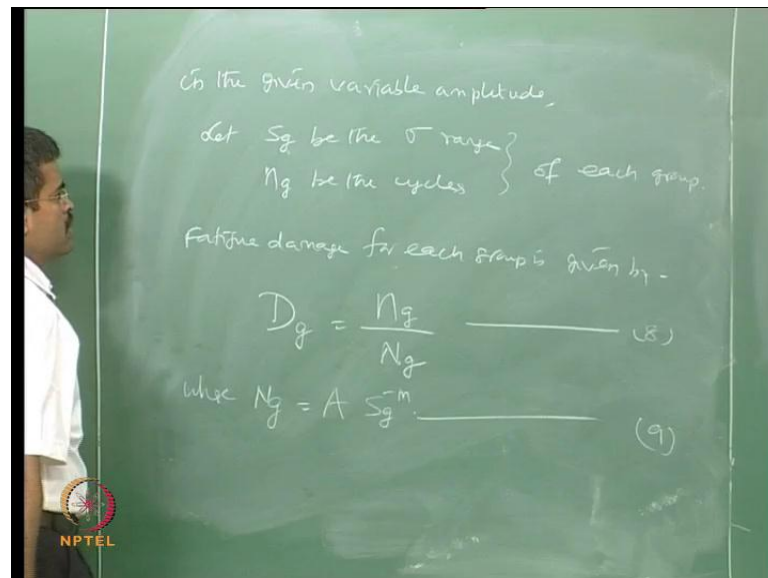 in the given variable amplitude,
Let Sg be the σ range } of each group.
ng be the cycles
Fatigue damage for each group is given by -
Dg = ng / Ng ——— (8)
where Ng = A Sg^-m. ——— (9)
NPTEL